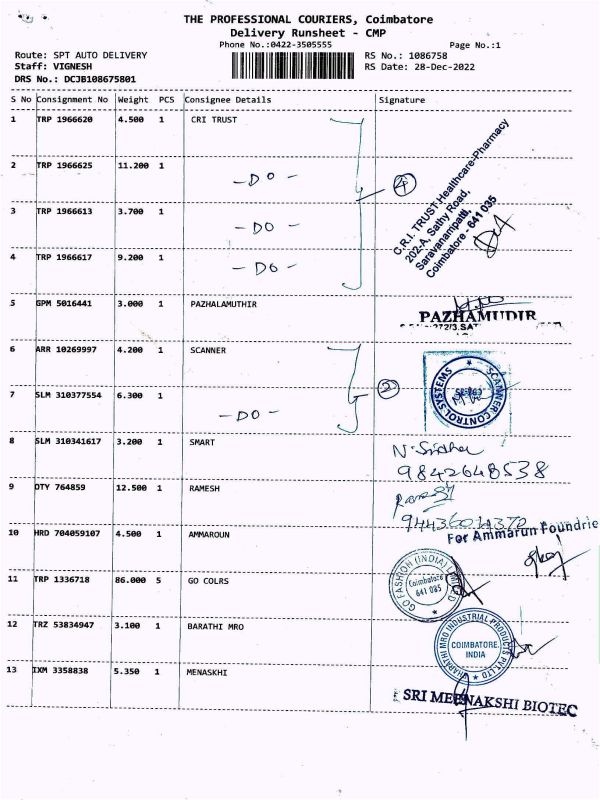 THE PROFESSIONAL COURIERS, Coimbatore
Delivery Runsheet - CMP
Phone No.:0422-3505555
Page No.:1
Route: SPT AUTO DELIVERY
RS No.: 1086758
Staff: VIGNESH
RS Date: 28-Dec-2022
DRS No.: DCJB108675801
S No Consignment No Weight PCS Consignee Details Signature
1 TRP 1966620 4.500 1 CRI TRUST
2 TRP 1966625 11.200 1 -DO-
3 TRP 1966613 3.700 1 -DO-
4 TRP 1966617 9.200 1 -DO-
4
C.R.I. TRUST Healthcare-Pharmacy
202-A, Sathy Road,
Saravanampatti,
Coimbatore - 641 035
5 GPM 5016441 3.000 1 PAZHALAMUTHIR
PAZHAMUDIR
6 ARR 10269997 4.200 1 SCANNER
7 SLM 310377554 6.300 1 -DO-
2
SCANNER CONTROL SYSTEMS
8 SLM 310341617 3.200 1 SMART
N. Sridhar
9842648538
9 OTY 764859 12.500 1 RAMESH
10 HRD 704059107 4.500 1 AMMAROUN
For Ammarun Foundrie
11 TRP 1336718 86.000 5 GO COLRS
GO FASHION (INDIA) LIMITED
Coimbatore
641 035
12 TRZ 53834947 3.100 1 BARATHI MRO
BHARATHI MRO INDUSTRIAL PRODUCTS PVT. LTD
COIMBATORE,
INDIA
13 IXM 3358838 5.350 1 MENASKHI
SRI MEENAKSHI BIOTEC